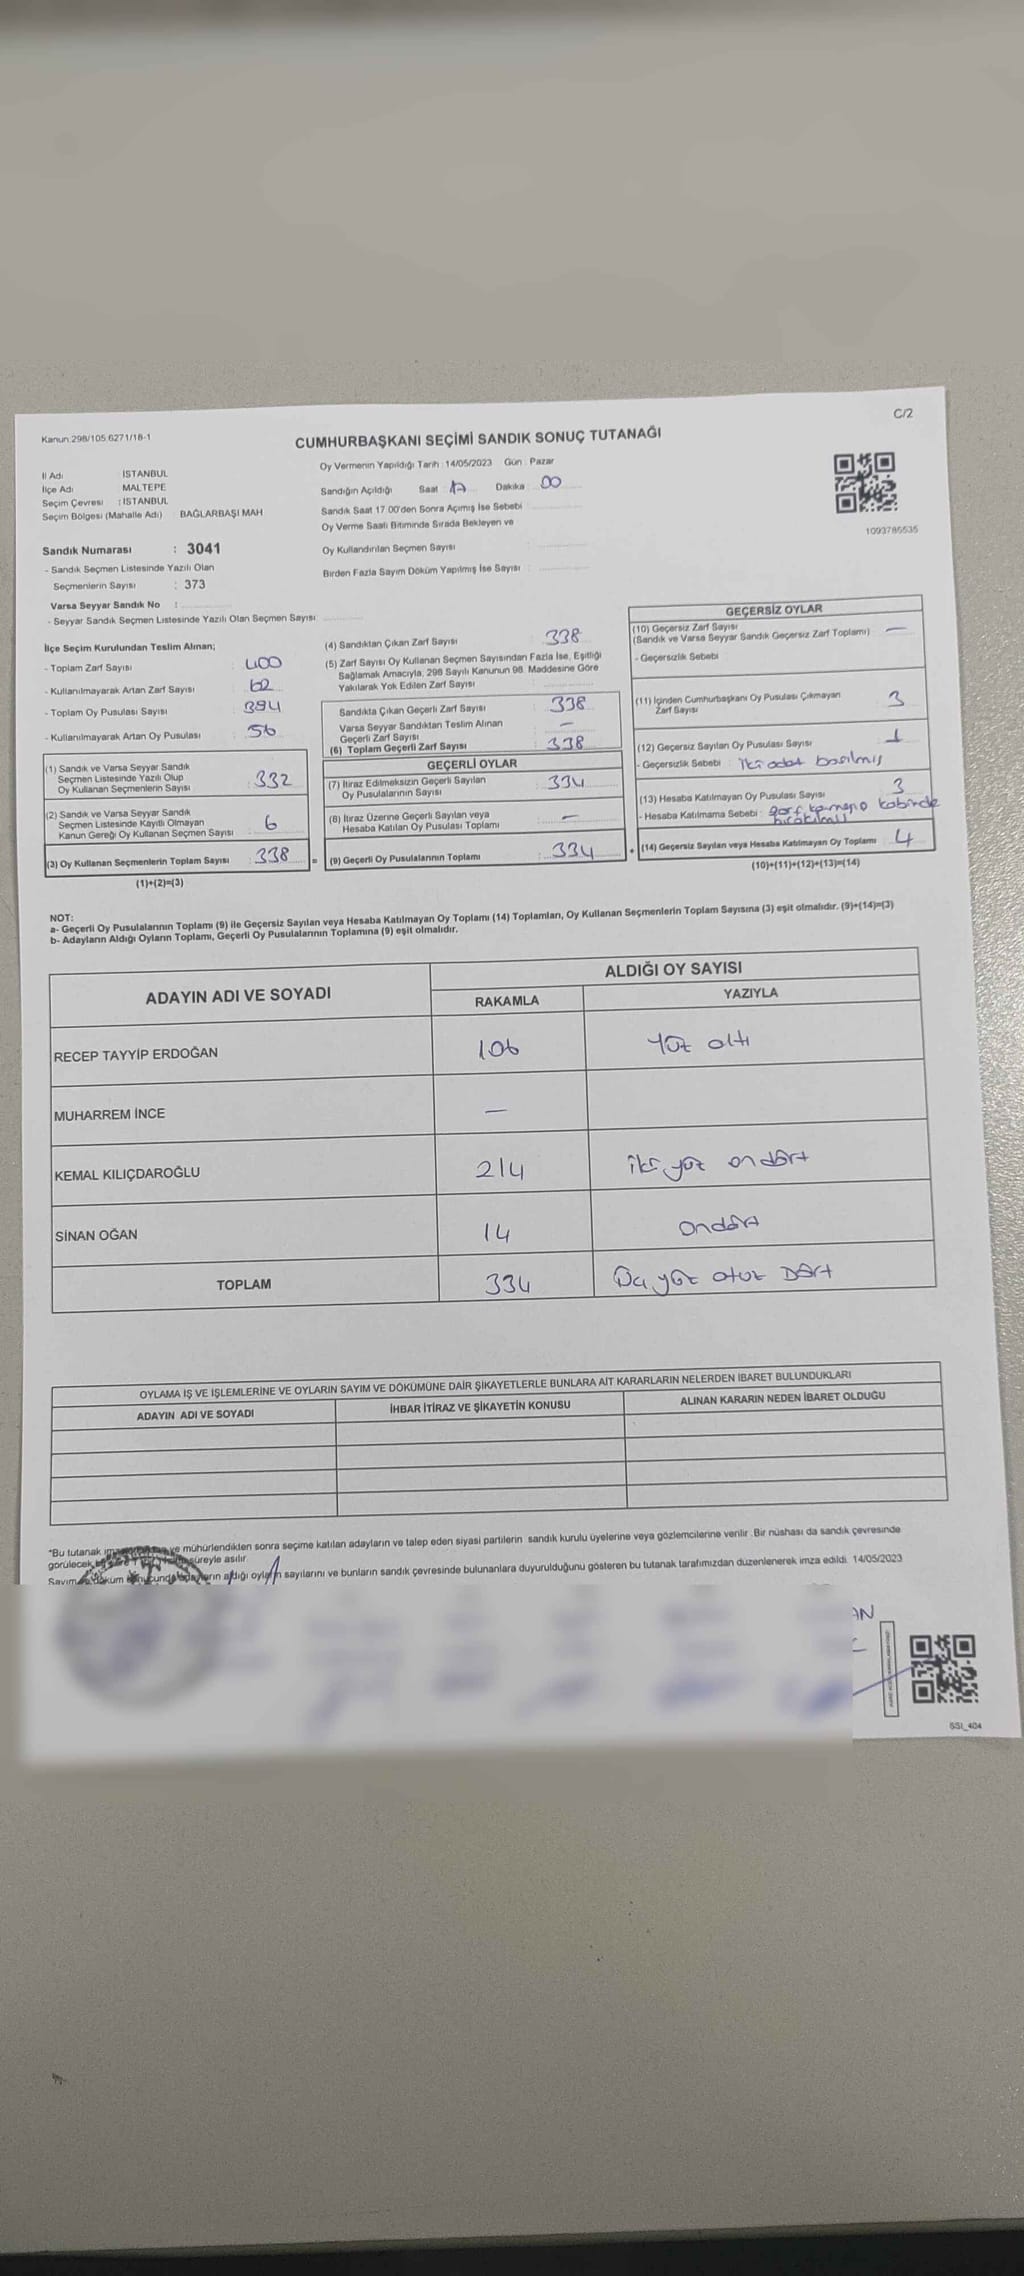 C/2
Kanun:298/105 6271/18-1
CUMHURBAŞKANI SEÇİMİ SANDIK SONUÇ TUTANAĞI
Oy Vermenin Yapıldığı Tarih : 14/05/2023 Gün : Pazar
İl Adı : İSTANBUL
İlçe Adı : MALTEPE
Seçim Çevresi : İSTANBUL
Seçim Bölgesi (Mahalle Adı) : BAĞLARBAŞI MAH
Sandığın Açıldığı Saat : 17 Dakika : 00
Sandık Saat 17.00'den Sonra Açımış İse Sebebi
Oy Verme Saati Bitiminde Sırada Bekleyen ve
Oy Kullandırılan Seçmen Sayısı
Birden Fazla Sayım Döküm Yapılmış İse Sayısı :
1093786535
Sandık Numarası : 3041
- Sandık Seçmen Listesinde Yazılı Olan
Seçmenlerin Sayısı : 373
Varsa Seyyar Sandık No :
- Seyyar Sandık Seçmen Listesinde Yazılı Olan Seçmen Sayısı:
İlçe Seçim Kurulundan Teslim Alınan;
- Toplam Zarf Sayısı : 400
- Kullanılmayarak Artan Zarf Sayısı : 62
- Toplam Oy Pusulası Sayısı : 394
- Kullanılmayarak Artan Oy Pusulası : 56
(1) Sandık ve Varsa Seyyar Sandık
Seçmen Listesinde Yazılı Olup
Oy Kullanan Seçmenlerin Sayısı : 332
(2) Sandık ve Varsa Seyyar Sandık
Seçmen Listesinde Kayıtlı Olmayan
Kanun Gereği Oy Kullanan Seçmen Sayısı : 6
(3) Oy Kullanan Seçmenlerin Toplam Sayısı : 338 =
(1)+(2)=(3)
(4) Sandıktan Çıkan Zarf Sayısı : 338
(5) Zarf Sayısı Oy Kullanan Seçmen Sayısından Fazla İse, Eşitliği
Sağlamak Amacıyla, 298 Sayılı Kanunun 98. Maddesine Göre
Yakılarak Yok Edilen Zarf Sayısı
Sandıkta Çıkan Geçerli Zarf Sayısı : 338
Varsa Seyyar Sandıktan Teslim Alınan
Geçerli Zarf Sayısı : —
(6) Toplam Geçerli Zarf Sayısı : 338
GEÇERLİ OYLAR
(7) İtiraz Edilmeksizin Geçerli Sayılan
Oy Pusulalarının Sayısı : 334
(8) İtiraz Üzerine Geçerli Sayılan veya
Hesaba Katılan Oy Pusulası Toplamı : —
(9) Geçerli Oy Pusulalarının Toplamı : 334 +
GEÇERSİZ OYLAR
(10) Geçersiz Zarf Sayısı
(Sandık ve Varsa Seyyar Sandık Geçersiz Zarf Toplamı) —
- Geçersizlik Sebebi
(11) İçinden Cumhurbaşkanı Oy Pusulası Çıkmayan
Zarf Sayısı 3
(12) Geçersiz Sayılan Oy Pusulası Sayısı 1
- Geçersizlik Sebebi : İki adet basılmış
(13) Hesaba Katılmayan Oy Pusulası Sayısı 3
- Hesaba Katılmama Sebebi : kabinde
(14) Geçersiz Sayılan veya Hesaba Katılmayan Oy Toplamı : 4
(10)+(11)+(12)+(13)=(14)
NOT:
a- Geçerli Oy Pusulalarının Toplamı (9) ile Geçersiz Sayılan veya Hesaba Katılmayan Oy Toplamı (14) Toplamları, Oy Kullanan Seçmenlerin Toplam Sayısına (3) eşit olmalıdır. (9)+(14)=(3)
b- Adayların Aldığı Oyların Toplamı, Geçerli Oy Pusulalarının Toplamına (9) eşit olmalıdır.
ADAYIN ADI VE SOYADI
ALDIĞI OY SAYISI
RAKAMLA YAZIYLA
RECEP TAYYİP ERDOĞAN 106 Yüz altı
MUHARREM İNCE —
KEMAL KILIÇDAROĞLU 214 iki yüz ondört
SİNAN OĞAN 14 Ondört
TOPLAM 334 Üç yüz otuz Dört
OYLAMA İŞ VE İŞLEMLERİNE VE OYLARIN SAYIM VE DÖKÜMÜNE DAİR ŞİKAYETLERLE BUNLARA AİT KARARLARIN NELERDEN İBARET BULUNDUKLARI
ADAYIN ADI VE SOYADI İHBAR İTİRAZ VE ŞİKAYETİN KONUSU ALINAN KARARIN NEDEN İBARET OLDUĞU
"Bu tutanak ve mühürlendikten sonra seçime katılan adayların ve talep eden siyasi partilerin sandık kurulu üyelerine veya gözlemcilerine verilir .Bir nüshası da sandık çevresinde
görülecek süreyle asılır.
Sayım döküm aldığı oyların sayılarını ve bunların sandık çevresinde bulunanlara duyurulduğunu gösteren bu tutanak tarafımızdan düzenlenerek imza edildi. 14/05/2023
SSI_404